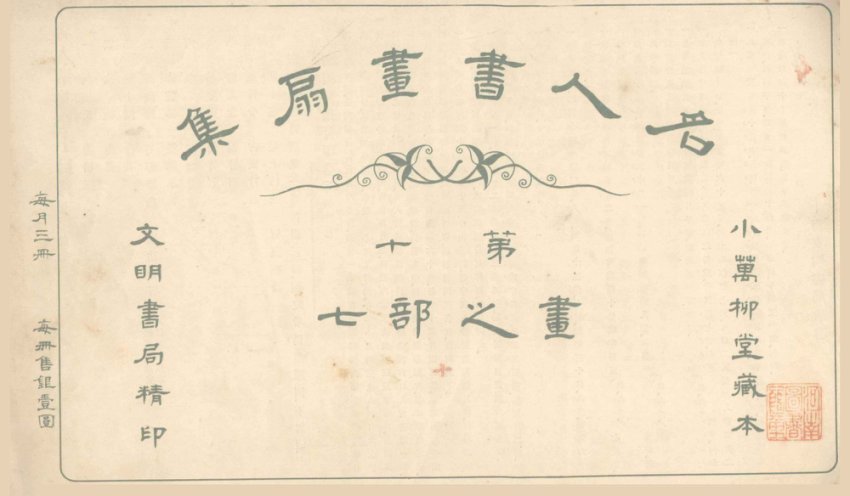 名人書畫扇集
小萬柳堂藏本
第十
畫之部七
十
文明書局精印
每月三冊 每冊售銀壹圓